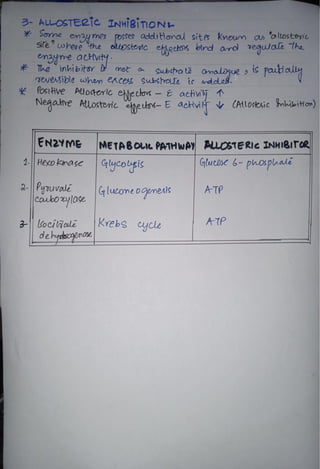 3- ALLOSTERIC INHIBITION:-
* Some enzymes posses additional sites known as "allosteric
site" where the allosteric effectors bind and regulate the
enzyme activity.
* The inhibitor is not a substrate analogue, is partially
reversible when excess substrate is added.
* Positive Allosteric effectors - E activity ↑
Negative Allosteric effectors - E activity ↓ (Allosteric Inhibition)
ENZYME METABOLIC PATHWAY ALLOSTERIC INHIBITOR
1. Hexokinase Glycolysis Glucose 6-phosphate
2. Pyruvate Gluconeogenesis ATP
carboxylase
3- Isocitrate Krebs cycle ATP
dehydrogenase